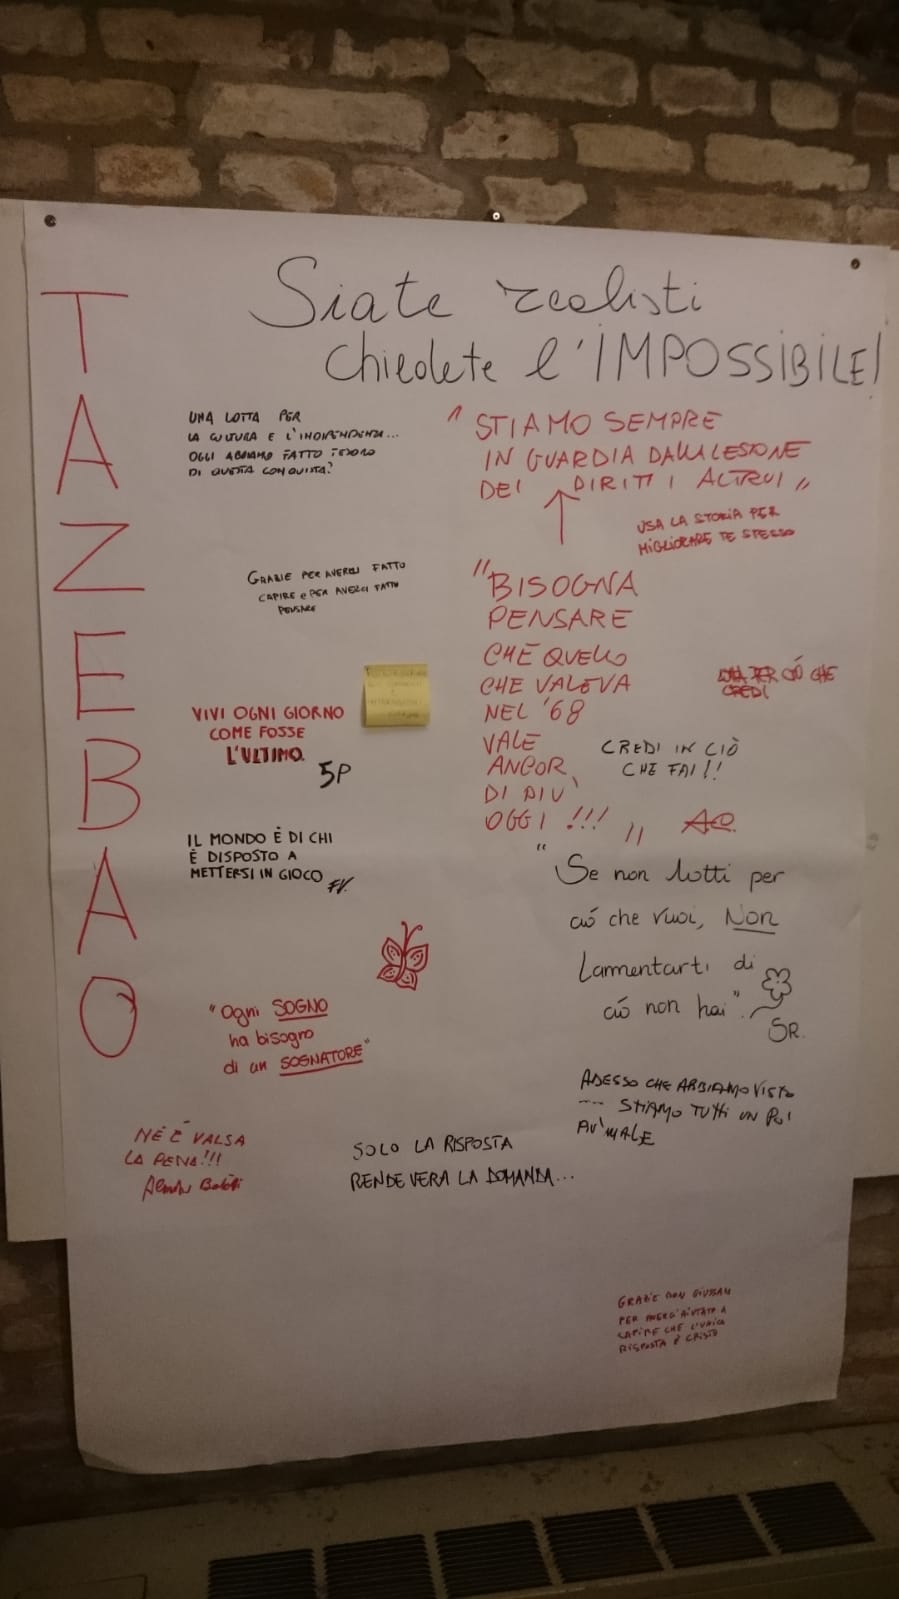 TAZEBAO
Siate realisti
chiedete l'IMPOSSIBILE!
UNA LOTTA PER
LA CULTURA E L'INDIPENDENZA...
OGGI ABBIAMO FATTO TESORO
DI QUESTA CONQUISTA?
" STIAMO SEMPRE
IN GUARDIA DALLA LESIONE
DEI DIRITTI ALTRUI "
USA LA STORIA PER
MIGLIORARE TE STESSO
GRAZIE PER AVERCI FATTO
CAPIRE e PER AVERCI FATTO
PENSARE
"BISOGNA
PENSARE
CHE QUELLO
CHE VALEVA
NEL '68
VALE
ANCOR
DI PIU'
OGGI !!! "
PER CIÓ CHE
CREDI
VIVI OGNI GIORNO
COME FOSSE
L'ULTIMO.
SP
CREDI IN CIÒ
CHE FAI!!
IL MONDO È DI CHI
È DISPOSTO A
METTERSI IN GIOCO FV.
"Se non lotti per
ció che vuoi, Non
Lammentarti di
ció non hai".
SR.
"Ogni SOGNO
ha bisogno
di un SOGNATORE"
ADESSO CHE ABBIAMO VISTO
--- STIAMO TUTTI UN PO'
PIU' MALE
NE È VALSA
LA PENA!!!
SOLO LA RISPOSTA
RENDE VERA LA DOMANDA...
GRAZIE DON GIUSSANI
PER AVERCI AIUTATO A
CAPIRE CHE L'UNICA
RISPOSTA È CRISTO